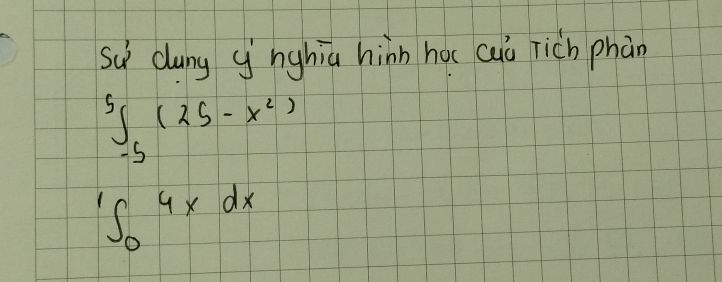 Sử dụng ý nghĩa hình học của Tích phân
⁵∫₋₅ (25 - x²)
¹∫₀ 4x dx